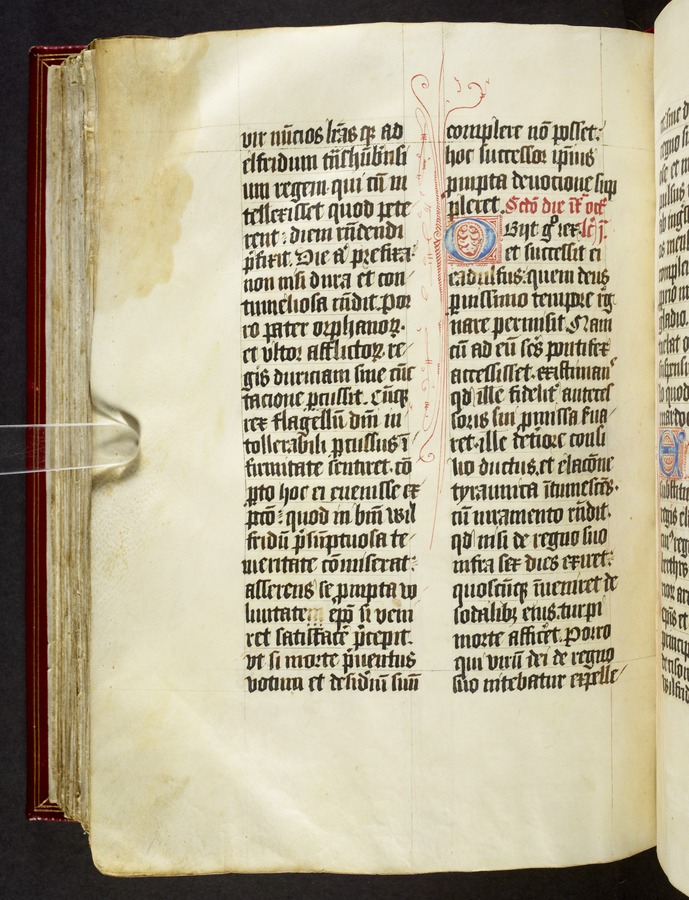 vir nūcios lr̄as qꝫ ad
elfridum trāshūbrēsi
um regem qui cū in
tellexisset quod pete
rent: diem rn̄dendi
p̄fixit. Die aͭ prefixa
non nisi dura et con
tumeliosa rn̄dit. Por
ro pater orphanoꝝ.
et vltor afflictoꝝ. re
gis duriciam sine cūc
tacione ꝑcussit. Cūqꝫ
rex flagellū dn̄i in
tollerabili ꝑcussus ī
firmitate sentiret. cō
ꝑto hoc ei euenisse ex
p̄cō: quod in bīm wil
fridū p̄sūptuosa te
meritate cōmiserat:
asserens se prūpta vo
luntate epō si veni
ret satisfacē p̄cepit.
vt si morte p̄uentus
votum et desid'iū suū
complere nō posset:
hoc successor ip̄ius
prūpta deuocione sup
pleret. Scd̄o die īx̄ oct̄
Obijt gͦ rex. lc̄ j.
et successit ei
eadulfus. quem deus
ꝑuissimo tempore rḡ
nare permisit. Nam
cū ad eū sc̄s pontifex
accessisset. existimanˢ
qd̄ ille fidelitᵉ anteces
soris sui ꝓmissa ẜua
ret. ille det'iore consi
lio ductus. et elacōne
tyrannica ītumescēs.
cū iuramento rn̄dit.
qd̄ nisi de regno suo
infra sex dies exiret.
quoscūqꝫ īueniret de
sodalibꝫ eius. turpi
morte afficēt. Porro
qui virū dei de regno
suo nitebatur expelle